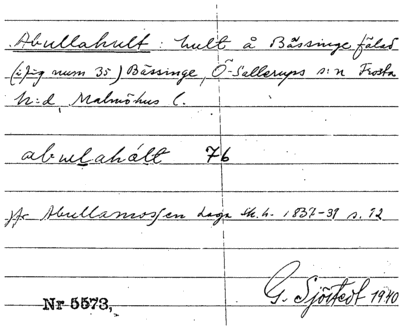 Abullahult: hult å Bässinge fälad
(i äg num 35) Bässinge, Ö-Sallerups s:n Frosta
h:d, Malmöhus l.
abulahält 76
jfr Abullamossen Laga sk.h. 1837-38 s. 12
G. Sjöstedt 1940
Nr 5573,